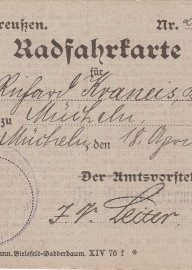 reußen. Nr.
Radfahrkarte
für
Richard Kraneis
zu Mücheln
Mücheln, den 18. Apri
Der Amtsvorsteh
J. V. Leiter.
nn. Bielefeld-Gadderbaum. XIV 76 f *